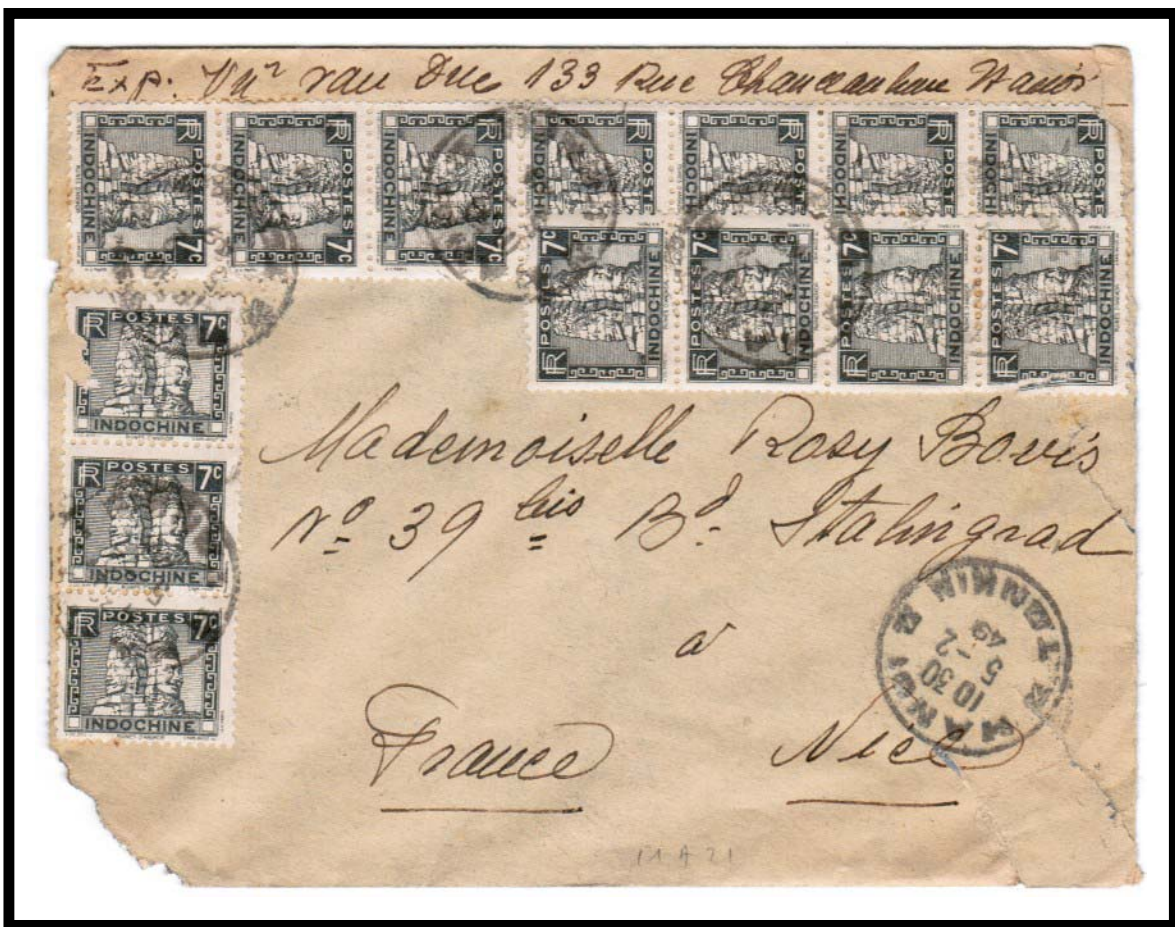 Exp: Vũ Van Duc 133 Rue Hanoi
RF POSTES 7c INDOCHINE
RF POSTES 7c INDOCHINE
RF POSTES 7c INDOCHINE
RF POSTES INDOCH
RF POSTES INDOCH
RF POSTES INDOCH
RF POSTES INDOCH
RF POSTES 7c INDOCHINE
RF POSTES 7c INDOCHINE
RF POSTES 7c INDOCHINE
RF POSTES 7c INDOCHINE
RF POSTES 7c
INDOCHINE
RF POSTES 7c
INDOCHINE
RF POSTES 7c
INDOCHINE
Mademoiselle Rosy Bovis
No 39 bis Bd. Stalingrad
à
France Nice
HANOI TONKIN
10 30
5 -2
49